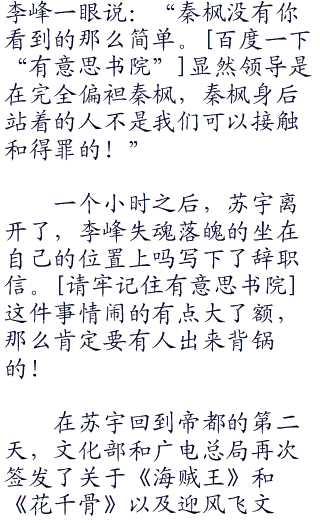 李峰一眼说：“秦枫没有你
看到的那么简单。[百度一下
“有意思书院”]显然领导是
在完全偏袒秦枫，秦枫身后
站着的人不是我们可以接触
和得罪的！”
一个小时之后，苏宇离
开了，李峰失魂落魄的坐在
自己的位置上吗写下了辞职
信。[请牢记住有意思书院]
这件事情闹的有点大了额，
那么肯定要有人出来背锅
的！
在苏宇回到帝都的第二
天，文化部和广电总局再次
签发了关于《海贼王》和
《花千骨》以及迎风飞文